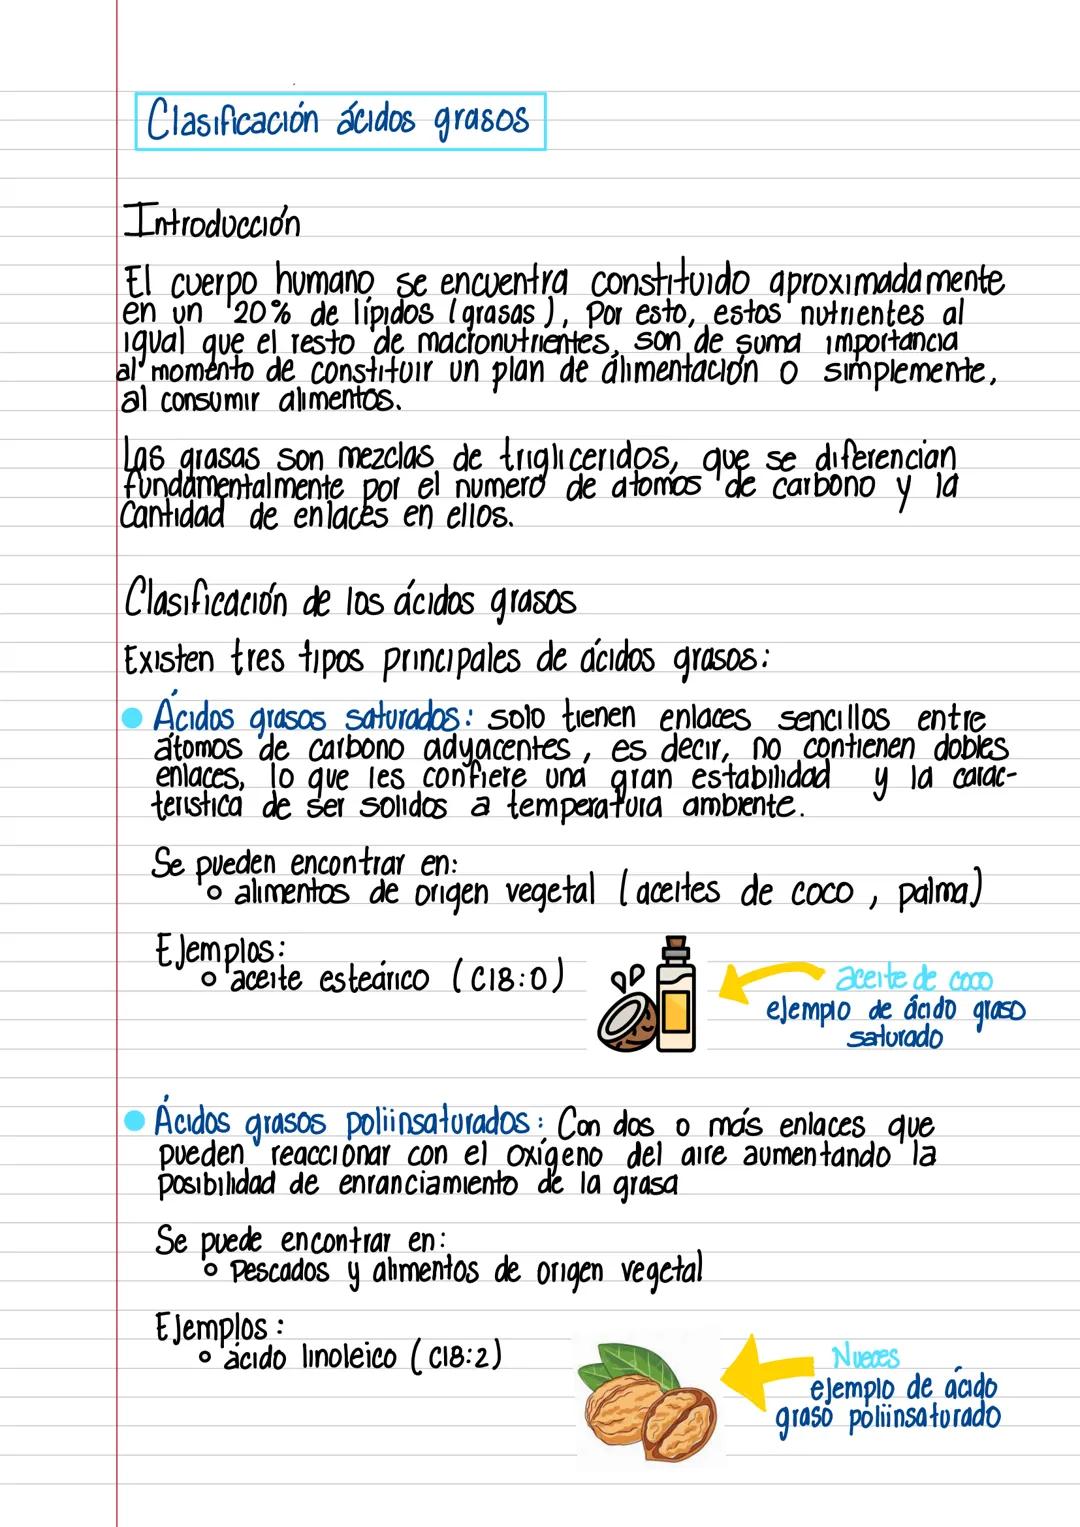 Clasificación ácidos grasos
Introducción
El cuerpo humano se encuentra constituido aproximadamente
en un 20% de lípidos (grasas), Por esto, estos nutrientes al
igual que el resto de macronutrientes, son de suma importancia
al momento de constituir un plan de alimentación o simplemente,
al consumir alimentos.
Las grasas son mezclas de trigliceridos, que se diferencian
fundamentalmente por el numero de atomos de carbono y la
Cantidad de enlaces en ellos.
Clasificación de los ácidos grasos
Existen tres tipos principales de ácidos grasos:
Ácidos grasos saturados: solo tienen enlaces sencillos entre
átomos de carbono adyacentes, es decir, no contienen dobles
enlaces, lo que les confiere una gran estabilidad y la carac-
teristica de ser solidos a temperatura ambiente.
Se pueden encontrar en:
alimentos de origen vegetal (aceites de coco, palma)
Ejemplos:
aceite esteárico (C18:0)
aceite de coco
ejemplo de ácido graso
saturado
Ácidos grasos poliinsaturados: Con dos o más enlaces que
pueden reaccionar con el oxígeno del aire aumentando la
posibilidad de enranciamiento de la grasa
Se puede encontrar en:
Pescados y alimentos de origen vegetal
Ejemplos:
ácido linoleico (C18:2)
Nueces
ejemplo de ácido
graso poliinsaturado